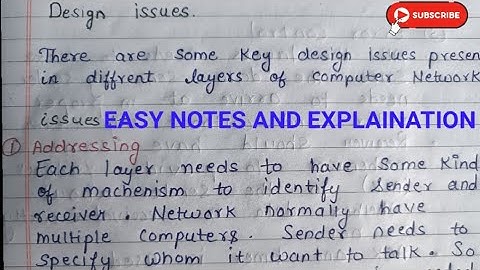 Design issues.
SUBSCRIBE
There are some key design issues presen
in diffrent layers of computer Network
issues
EASY NOTES AND EXPLAINATION
① Addressing
Each layer needs to have some kind
of machenism to identify sender and
receiver. Network normally have
multiple computers. Sender needs to
specify whom it want to talk. So